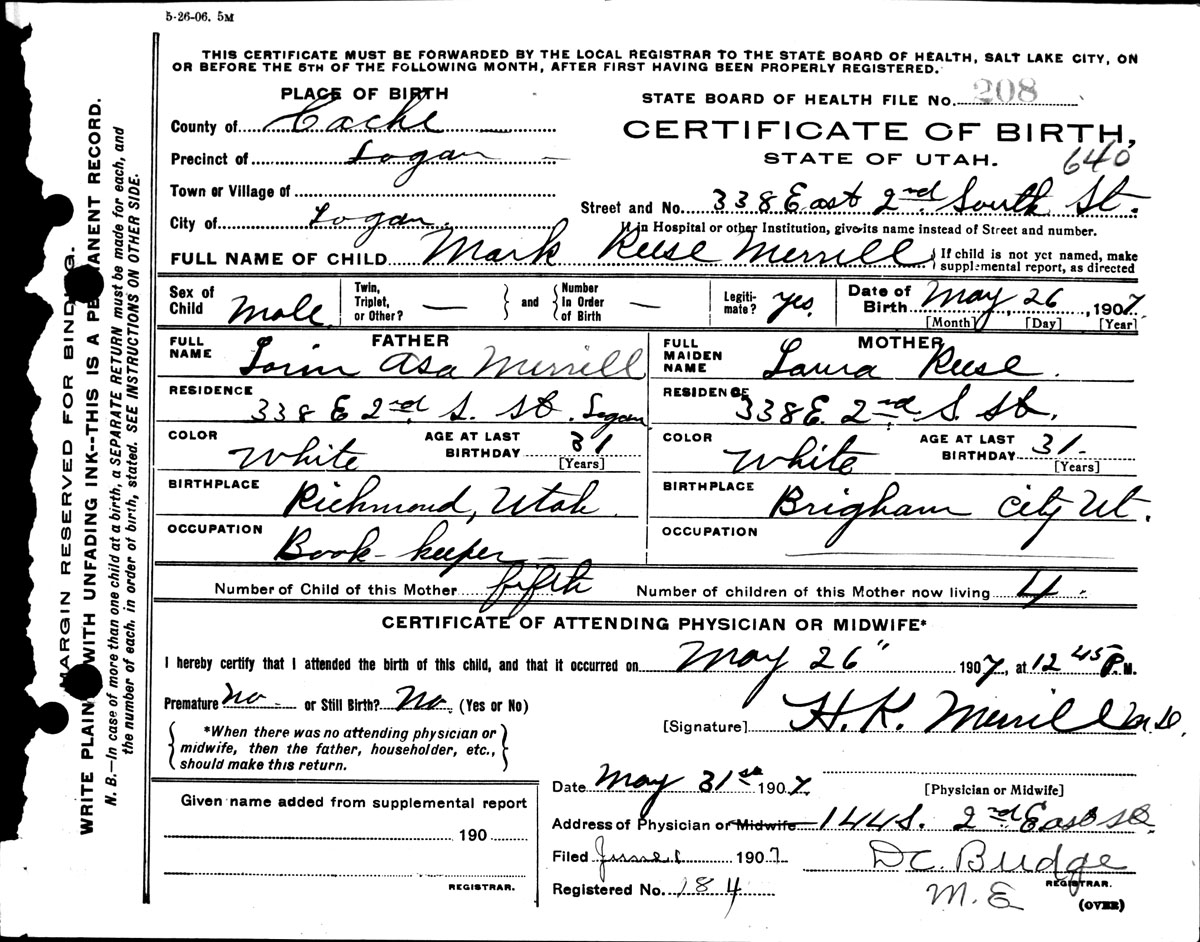 5-26-06. 5M
THIS CERTIFICATE MUST BE FORWARDED BY THE LOCAL REGISTRAR TO THE STATE BOARD OF HEALTH, SALT LAKE CITY, ON
OR BEFORE THE 5TH OF THE FOLLOWING MONTH, AFTER FIRST HAVING BEEN PROPERLY REGISTERED.
PLACE OF BIRTH
STATE BOARD OF HEALTH FILE No. 208
County of Cache
CERTIFICATE OF BIRTH,
Precinct of Logan
STATE OF UTAH.
640
Town or Village of
City of Logan.
Street and No. 338 East 2nd South St.
If in Hospital or other Institution, give its name instead of Street and number.
FULL NAME OF CHILD Mark Reese Merrill
If child is not yet named, make
supplemental report, as directed
Sex of Child Male
Twin, Triplet, or Other? —
and
Number In Order of Birth —
Legitimate? Yes.
Date of Birth May 26, 1907.
[Month] [Day] [Year]
FATHER
FULL NAME Lorin Asa Merrill
RESIDENCE 338 E 2nd S. St. Logan
COLOR White
AGE AT LAST BIRTHDAY 31
[Years]
BIRTHPLACE Richmond, Utah
OCCUPATION Book-keeper
MOTHER
FULL MAIDEN NAME Laura Reese.
RESIDENCE 338 E. 2nd S St.
COLOR White
AGE AT LAST BIRTHDAY 31.
[Years]
BIRTHPLACE Brigham City Ut.
OCCUPATION
Number of Child of this Mother fifth
Number of children of this Mother now living 4.
CERTIFICATE OF ATTENDING PHYSICIAN OR MIDWIFE*
I hereby certify that I attended the birth of this child, and that it occurred on May 26" 1907, at 12 45 P.M.
Premature No or Still Birth? No. (Yes or No)
[Signature] H. K. Merrill M.D.
*When there was no attending physician or
midwife, then the father, householder, etc.,
should make this return.
[Physician or Midwife]
Date May 31st 1907.
Given name added from supplemental report
190
REGISTRAR.
Address of Physician or Midwife 144 S. 2nd East St.
Filed June 1 1907
D C. Budge
Registered No. 184
REGISTRAR.
(OVER)
MARGIN RESERVED FOR BINDING.
WRITE PLAINLY WITH UNFADING INK--THIS IS A PERMANENT RECORD.
N. B.—In case of more than one child at a birth, a SEPARATE RETURN must be made for each, and
the number of each, in order of birth, stated. SEE INSTRUCTIONS ON OTHER SIDE.